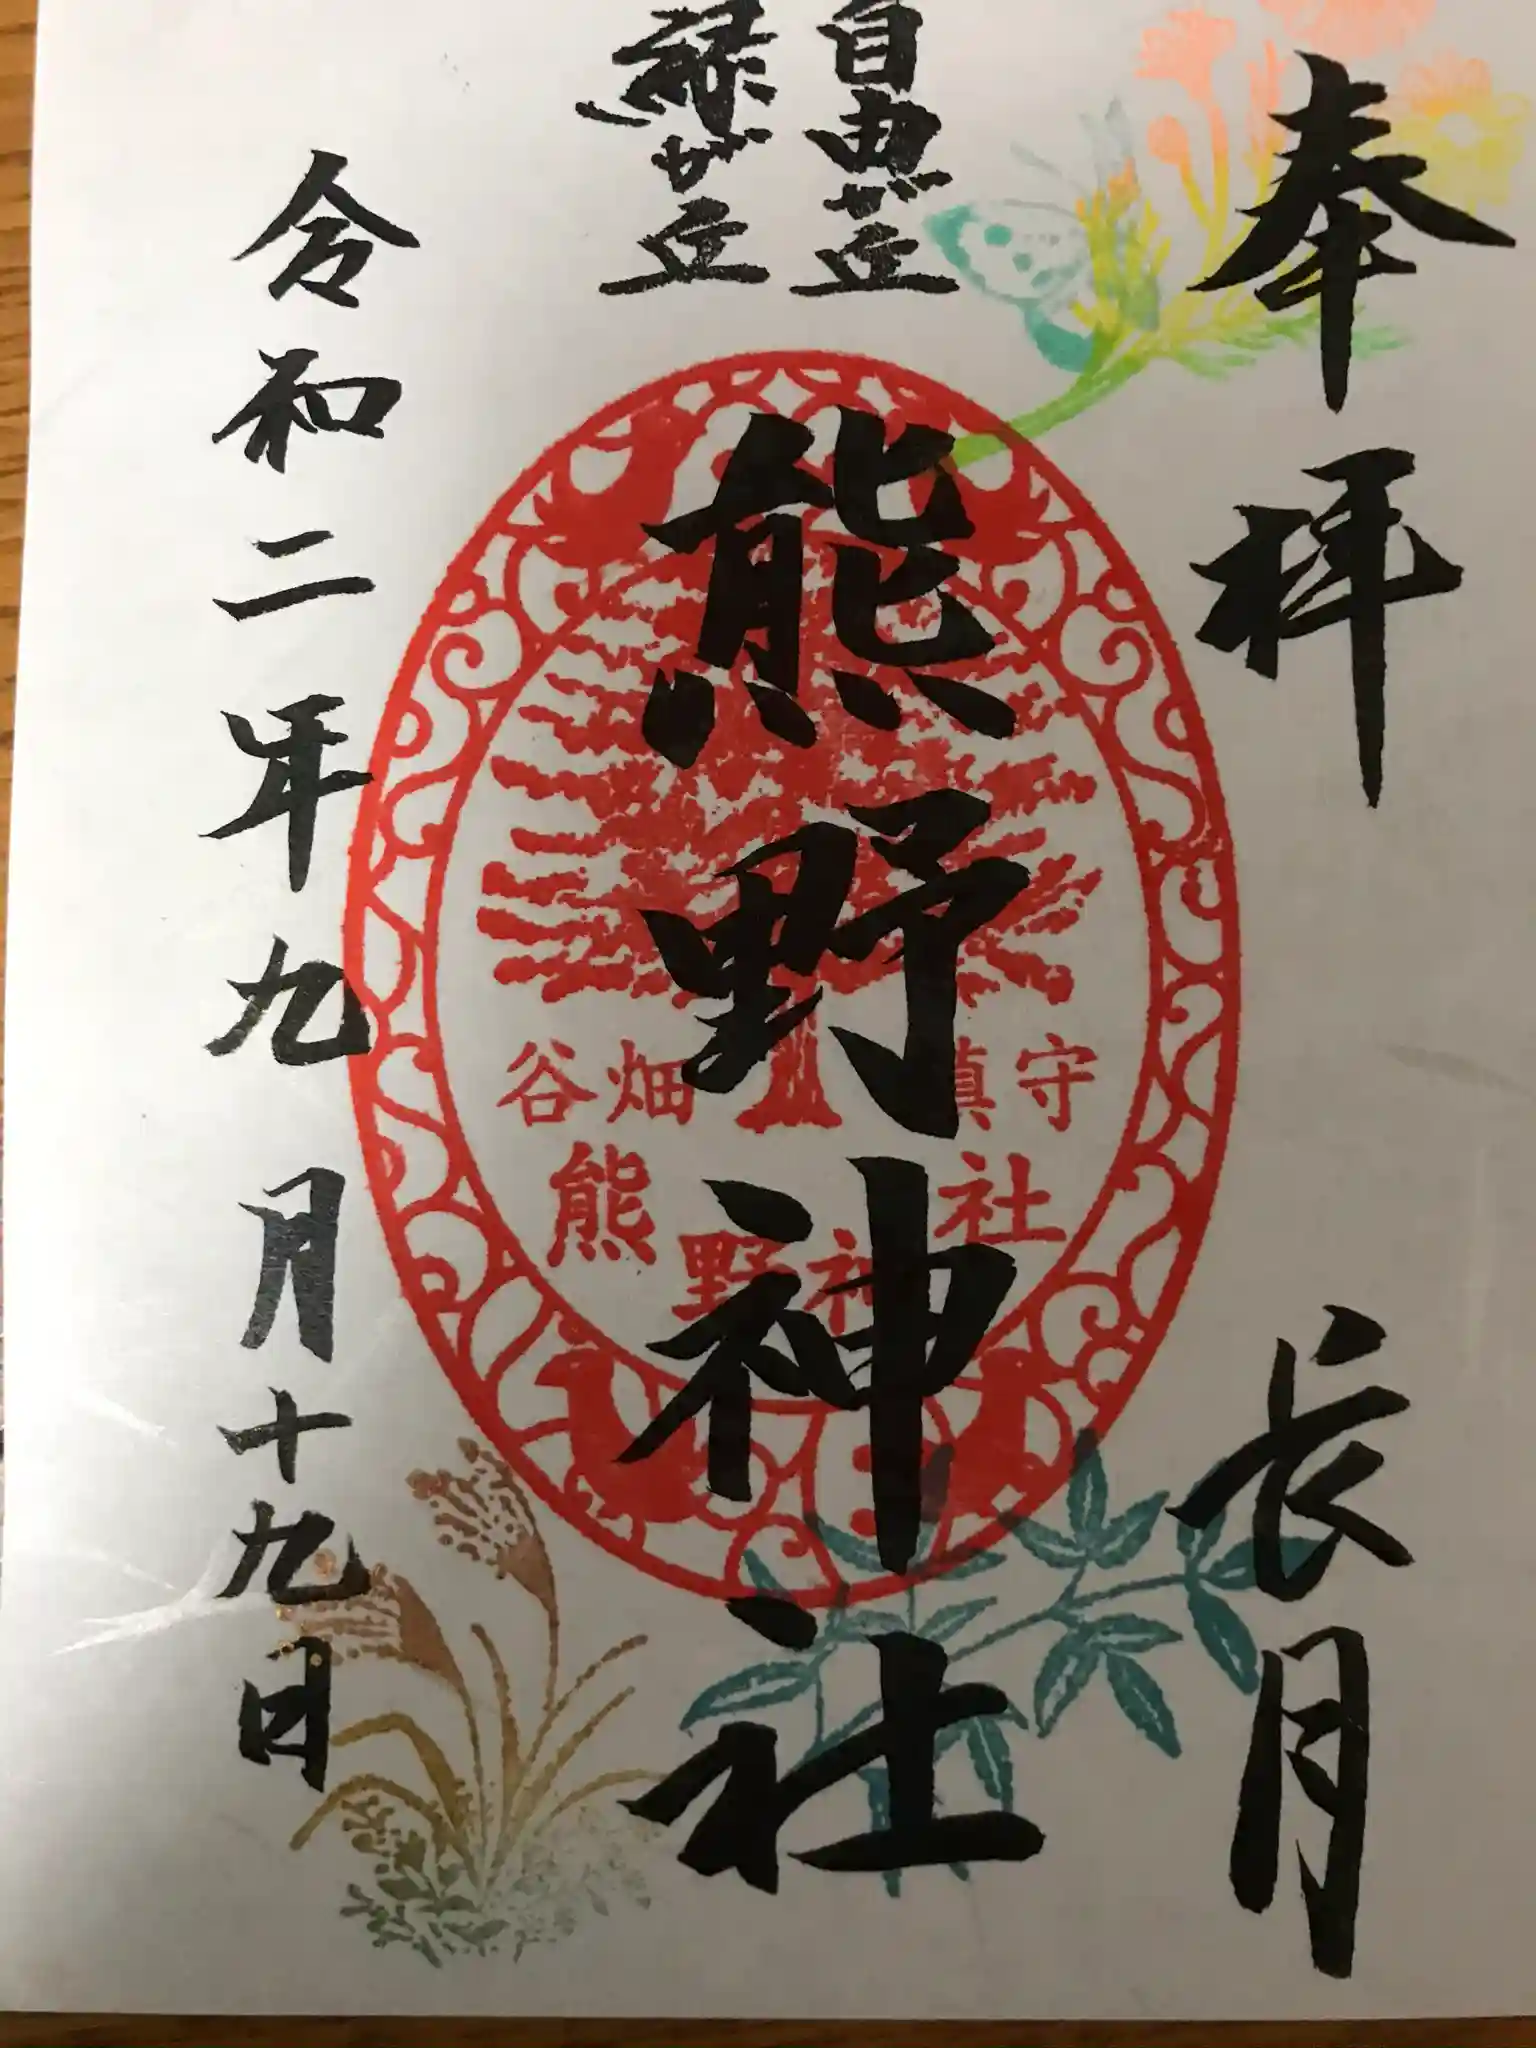 奉拝 長月
自由が丘
緑が丘
熊野神社
谷畑 鎮守
熊野神社
令和二年九月十九日